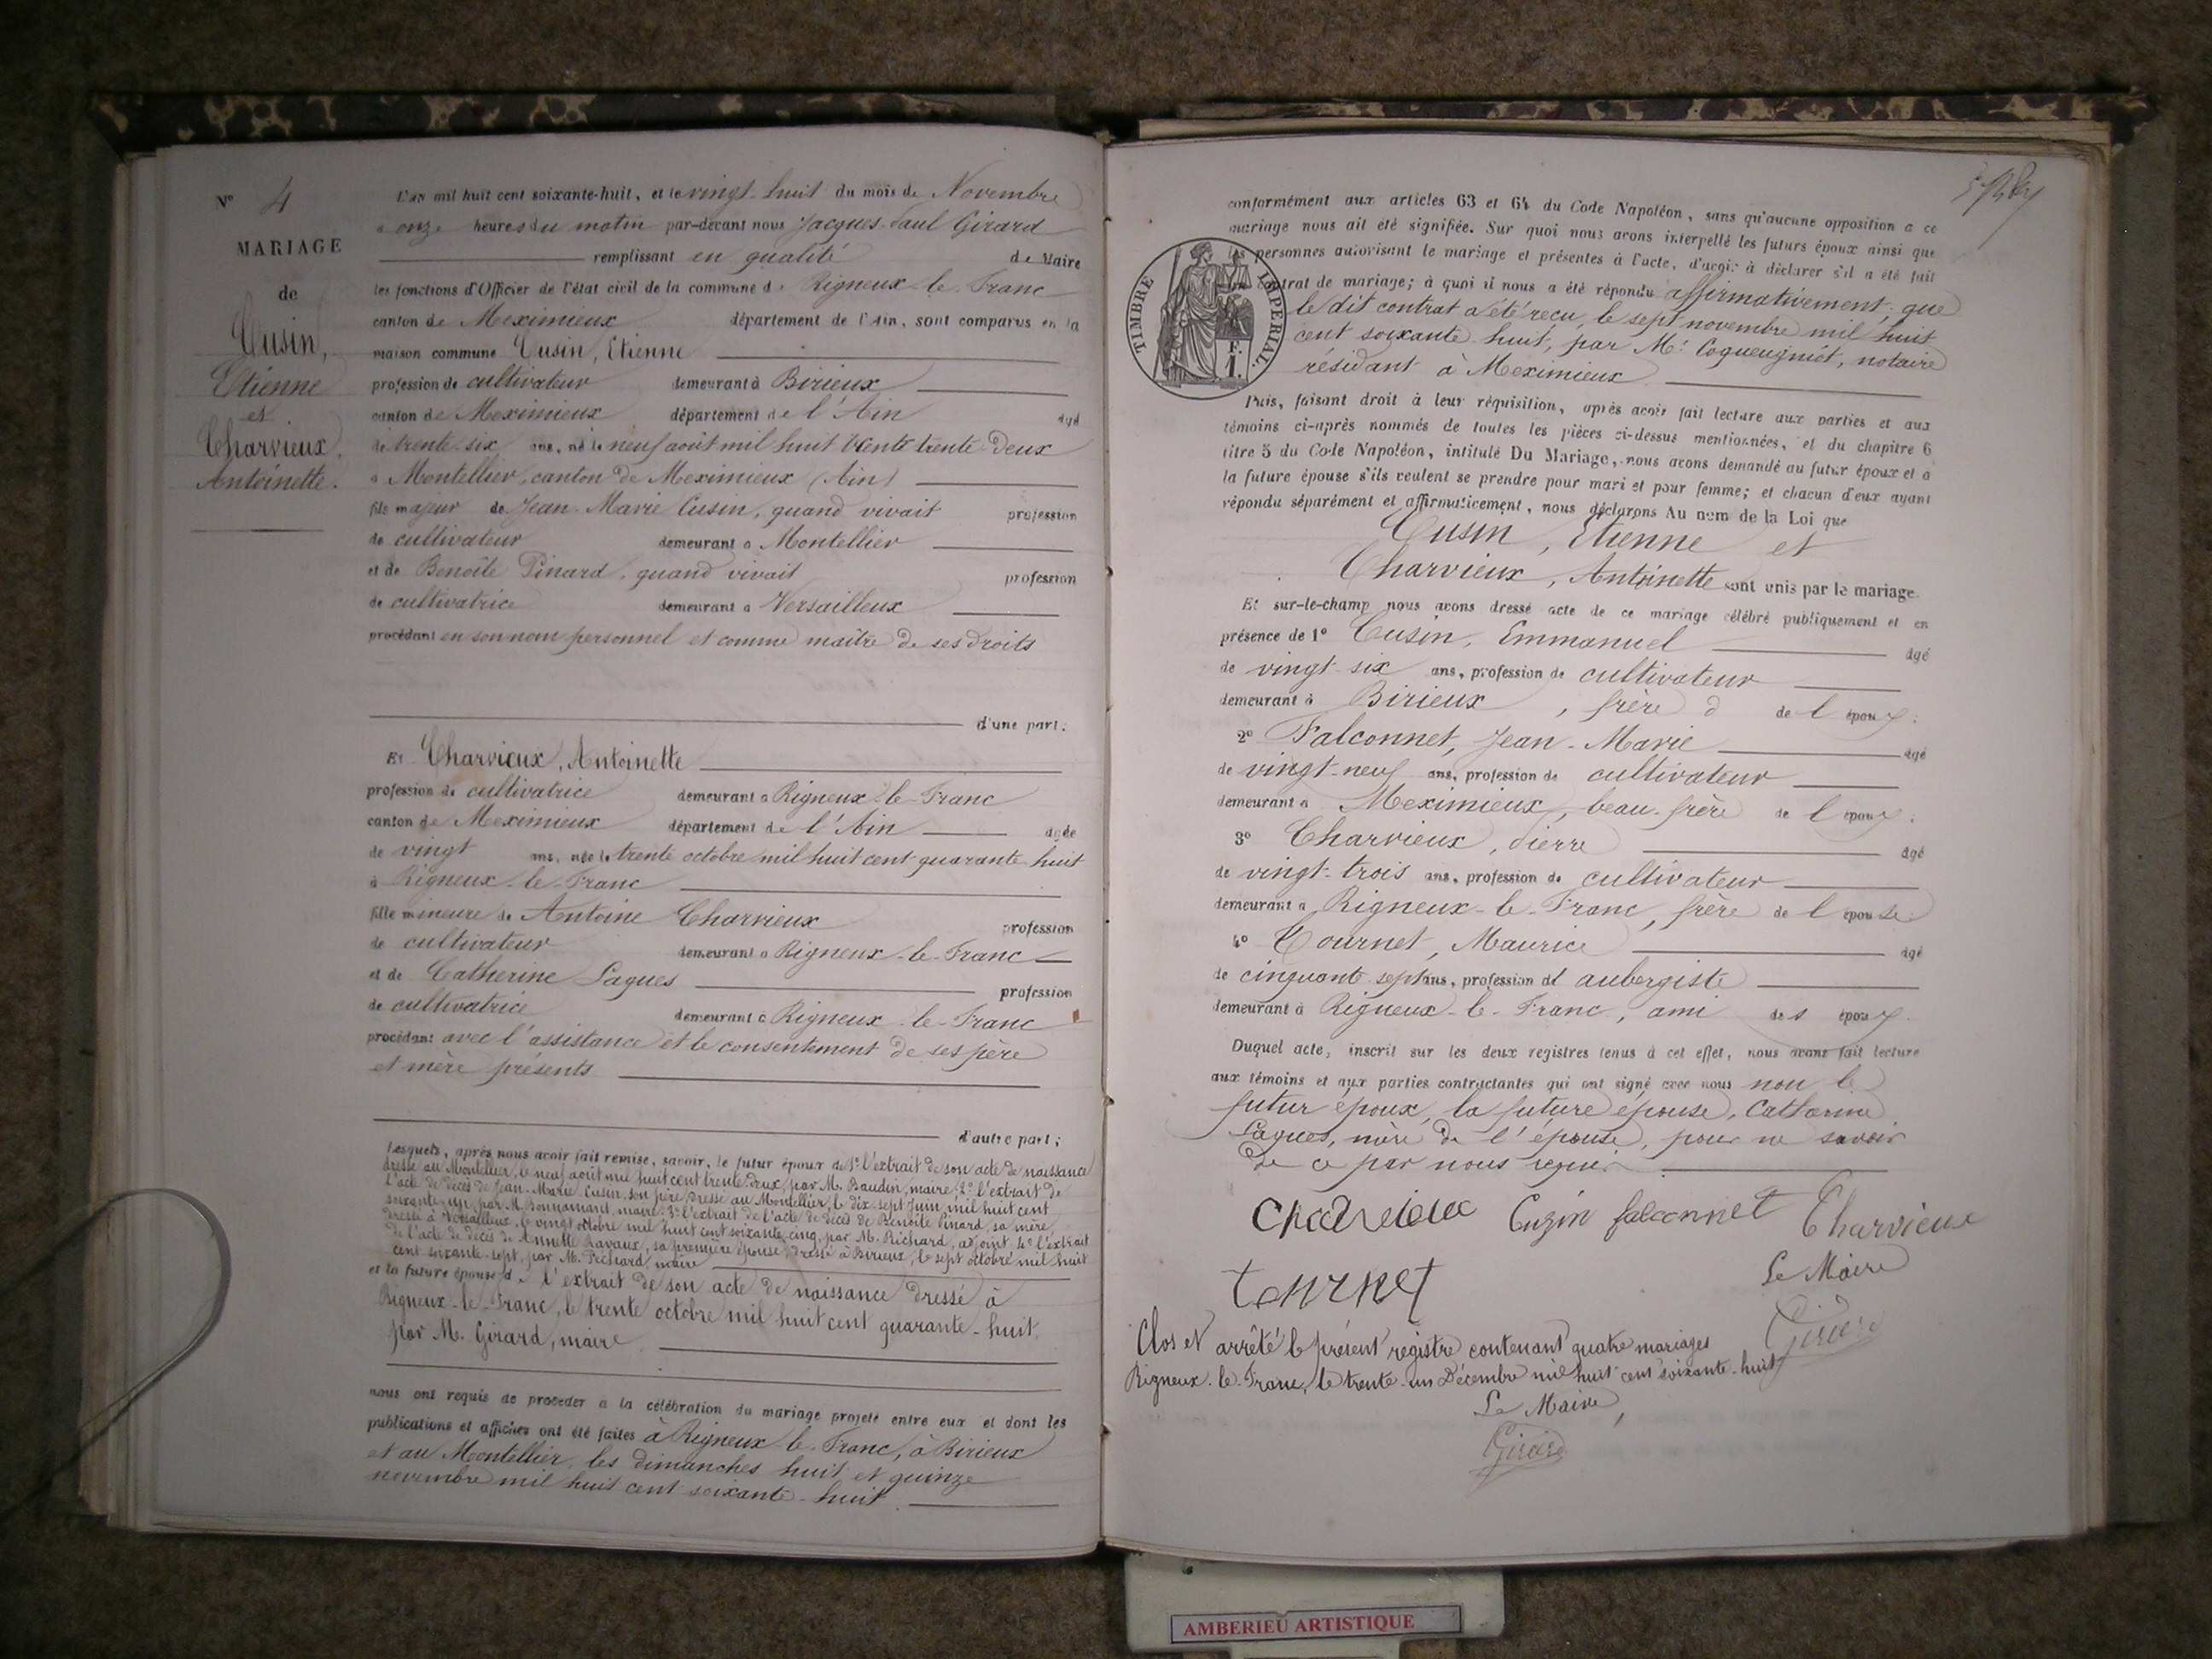 N° 4
MARIAGE
de
Cusin,
Etienne
et
Charvieux,
Antoinette.
L'an mil huit cent soixante-huit, et le vingt-huit du mois de Novembre
à onze heures du matin par-devant nous Jacques-Paul Girard
remplissant en qualité de Maire
les fonctions d'Officier de l'état civil de la commune de Rigneux-le-Franc
canton de Meximieux département de l'Ain, sont comparus en la
maison commune Cusin, Etienne
profession de cultivateur demeurant à Birieux
canton de Meximieux département de l'Ain âgé
de trente-six ans, né le neuf août mil huit cent trente-deux
à Montellier, canton de Meximieux (Ain)
fils majeur de Jean-Marie Cusin, quand vivait profession
de cultivateur demeurant à Montellier
et de Benoîte Pinard, quand vivait profession
de cultivatrice demeurant à Versailleux
procédant en son nom personnel et comme maître de ses droits
d'une part;
Et Charvieux, Antoinette
profession de cultivatrice demeurant à Rigneux-le-Franc
canton de Meximieux département de l'Ain âgée
de vingt ans, née le trente octobre mil huit cent quarante-huit
à Rigneux-le-Franc
fille mineure de Antoine Charvieux profession
de cultivateur demeurant à Rigneux-le-Franc
et de Catherine Lagues profession
de cultivatrice demeurant à Rigneux-le-Franc
procédant avec l'assistance et le consentement de ses père
et mère présents
d'autre part;
Lesquels, après nous avoir fait remise, savoir, le futur époux de 1° l'extrait de son acte de naissance
dressé au Montellier, le neuf août mil huit cent trente-deux, par M. Baudin, maire; 2° l'extrait de
l'acte de décès de Jean-Marie Cusin, son père, dressé au Montellier, le dix-sept Juin mil huit cent
soixante-un, par M. Bonnamant, maire; 3° l'extrait de l'acte de décès de Benoîte Pinard, sa mère,
dressé à Versailleux, le vingt octobre mil huit cent soixante-cinq, par M. Richard, adjoint; 4° l'extrait
de l'acte de décès de Annette Ravaux, sa première épouse, dressé à Birieux, le sept octobre mil huit
cent soixante-sept, par M. Préchard, maire
et la future épouse d l'extrait de son acte de naissance dressé à
Rigneux-le-Franc, le trente octobre mil huit cent quarante-huit,
par M. Girard, maire
nous ont requis de procéder à la célébration du mariage projeté entre eux et dont les
publications et affiches ont été faites à Rigneux-le-Franc, à Birieux
et au Montellier, les dimanches huit et quinze
novembre mil huit cent soixante-huit
conformément aux articles 63 et 64 du Code Napoléon, sans qu'aucune opposition à ce
mariage nous ait été signifiée. Sur quoi nous avons interpellé les futurs époux ainsi que
les personnes autorisant le mariage et présentes à l'acte, d'avoir à déclarer s'il a été fait
contrat de mariage; à quoi il nous a été répondu affirmativement; que
le dit contrat a été reçu, le sept novembre mil huit
cent soixante-huit, par Mᵉ Coqueugniot, notaire
résidant à Meximieux
TIMBRE IMPERIAL.
1 F.
Puis, faisant droit à leur réquisition, après avoir fait lecture aux parties et aux
témoins ci-après nommés de toutes les pièces ci-dessus mentionnées, et du chapitre 6
titre 5 du Code Napoléon, intitulé Du Mariage, nous avons demandé au futur époux et à
la future épouse s'ils veulent se prendre pour mari et pour femme; et chacun d'eux ayant
répondu séparément et affirmativement, nous déclarons Au nom de la Loi que
Cusin, Etienne et
Charvieux, Antoinette sont unis par le mariage
Et sur-le-champ nous avons dressé acte de ce mariage célébré publiquement et en
présence de 1° Cusin, Emmanuel âgé
de vingt-six ans, profession de cultivateur
demeurant à Birieux, frère d de l époux;
2° Falconnet, Jean-Marie âgé
de vingt-neuf ans, profession de cultivateur
demeurant à Meximieux, beau-frère de l époux;
3° Charvieux, Pierre âgé
de vingt-trois ans, profession de cultivateur
demeurant à Rigneux-le-Franc, frère de l épouse
4° Tournet, Maurice âgé
de cinquante-sept ans, profession d'aubergiste
demeurant à Rigneux-le-Franc, ami des époux.
Duquel acte, inscrit sur les deux registres tenus à cet effet, nous avons fait lecture
aux témoins et aux parties contractantes qui ont signé avec nous non le
futur époux, la future épouse, Catherine
Lagues, mère de l'épouse, pour ne savoir
de ce par nous requis
Charvieux Cuzin falconnet Charvieux
tournet
Le Maire
Girard
Clos et arrêté le présent registre contenant quatre mariages
Rigneux-le-Franc, le trente-un Décembre mil huit cent soixante-huit
Le Maire,
Girard
AMBERIEU ARTISTIQUE